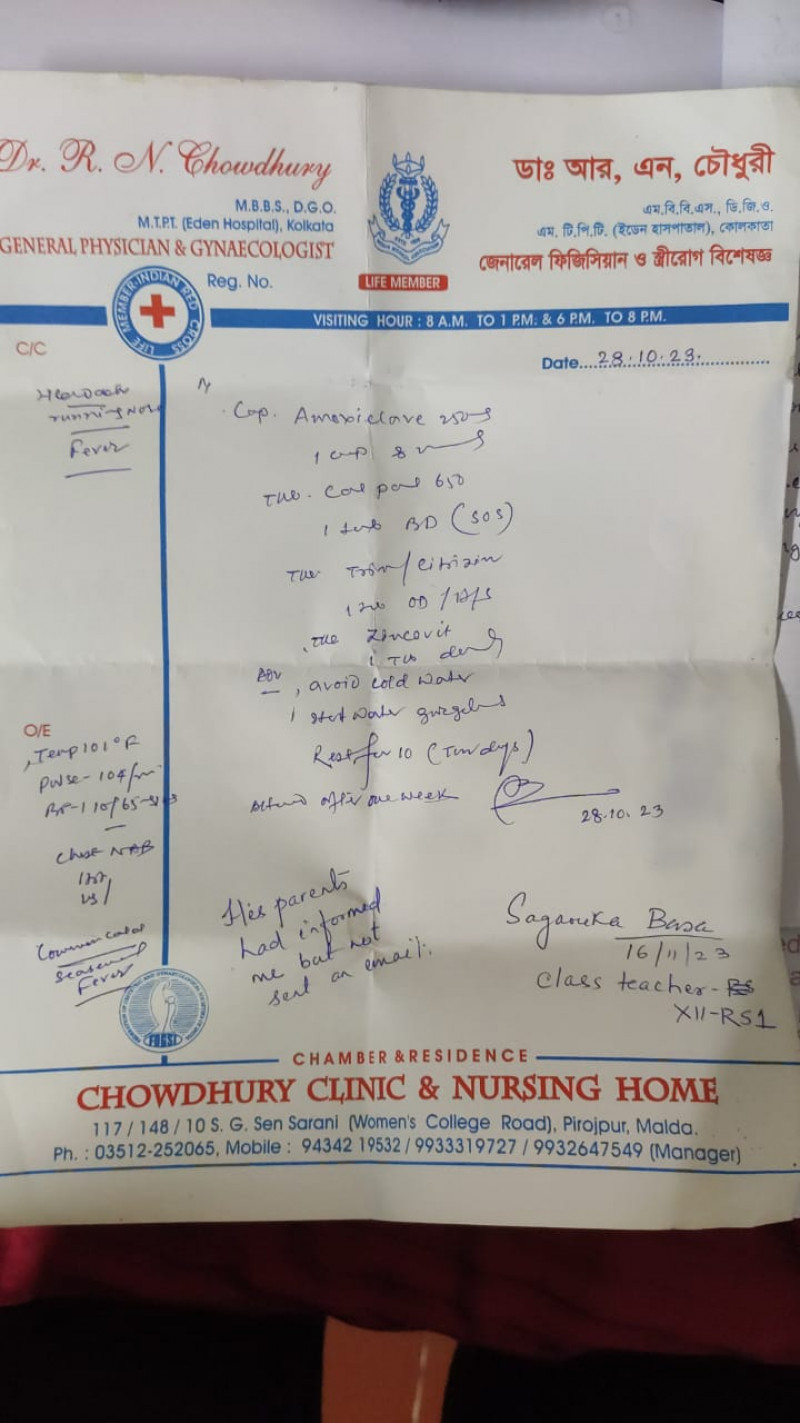 Dr. R. N. Chowdhury
M.B.B.S., D.G.O.
M.T.P.T. (Eden Hospital), Kolkata
GENERAL PHYSICIAN & GYNAECOLOGIST
Reg. No.
LIFE MEMBER
ডাঃ আর, এন, চৌধুরী
এম.বি.বি.এস., ডি.জি.ও.
এম. টি.পি.টি. (ইডেন হাসপাতাল), কোলকাতা
জেনারেল ফিজিসিয়ান ও স্ত্রীরোগ বিশেষজ্ঞ
LIFE MEMBER INDIAN RED CROSS
VISITING HOUR : 8 A.M. TO 1 P.M. & 6 P.M. TO 8 P.M.
C/C
Date....28.10.23.
running nose
Fever
Cap. Amoxiclave 250mg
1 cap 8
650
1 tab BD (SOS)
Citrizin
OD / H/S
Zincovit
1 Tab daily
Adv, avoid cold water
Hot water gurgels
Rest for 10 (Ten days)
Attend after one week
28.10.23
O/E
Temp 101°F
Pulse - 104/m
BP - 110/65
Chest NAD
Common cold
Seasonal
Fever
His parents
had informed
me but not
sent an email.
Saganika Basa
16/11/23
Class teacher -
XII-RS1
FOGSI
CHAMBER & RESIDENCE
CHOWDHURY CLINIC & NURSING HOME
117 / 148 / 10 S. G. Sen Sarani (Women's College Road), Pirojpur, Malda.
Ph. : 03512-252065, Mobile : 94342 19532 / 9933319727 / 9932647549 (Manager)